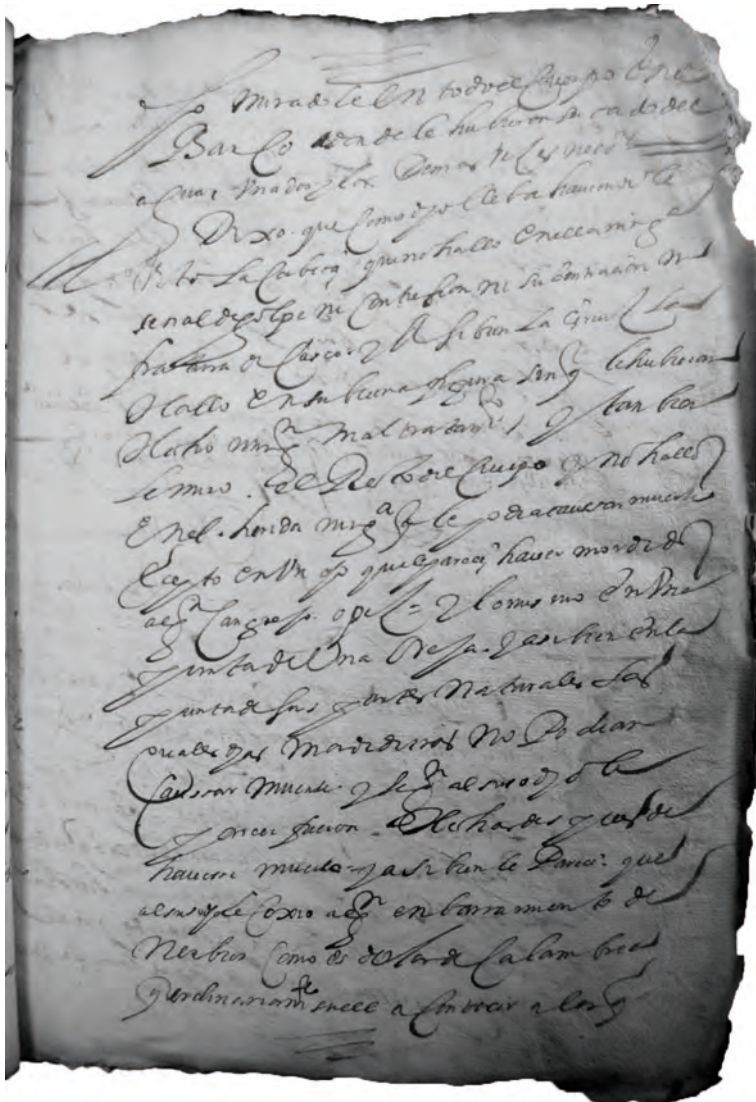 mirado le en todo el Cuerpo en el
Barco donde le hubieron sacado del
agua
Dixo que Como dho lleba haviendole
Visto La Cabeça que no hallo en ella ning^a
señal de golpe ni Contusion ni
fratura de Casco y si bien La La
Hallo en su buena sin q le hubieran
Hecho ning^n mal tratam^to y tan bien
le miro el Resto del Cuerpo y no hallo
en el herida ning^a q le podia causar muerte
Ecepto en Un ojo que le pareçe haver mordido
alg^n Cangrejo o pez = y lo mismo en la
punta de Una Oreja y asi bien en la
punta de sus partes Naturales Las
quales dhas Mordeduras No Podian
Causar Muerte y seg^n al suso dho le
pareçe fueron Hechas despues de
haverse muerto y asi bien le Pareçe que
al suso dho le Coxio alg^n en barramiento de
Nerbios Como es dolor de Calambre
q hordinariam^te suele a Conteçer a los q